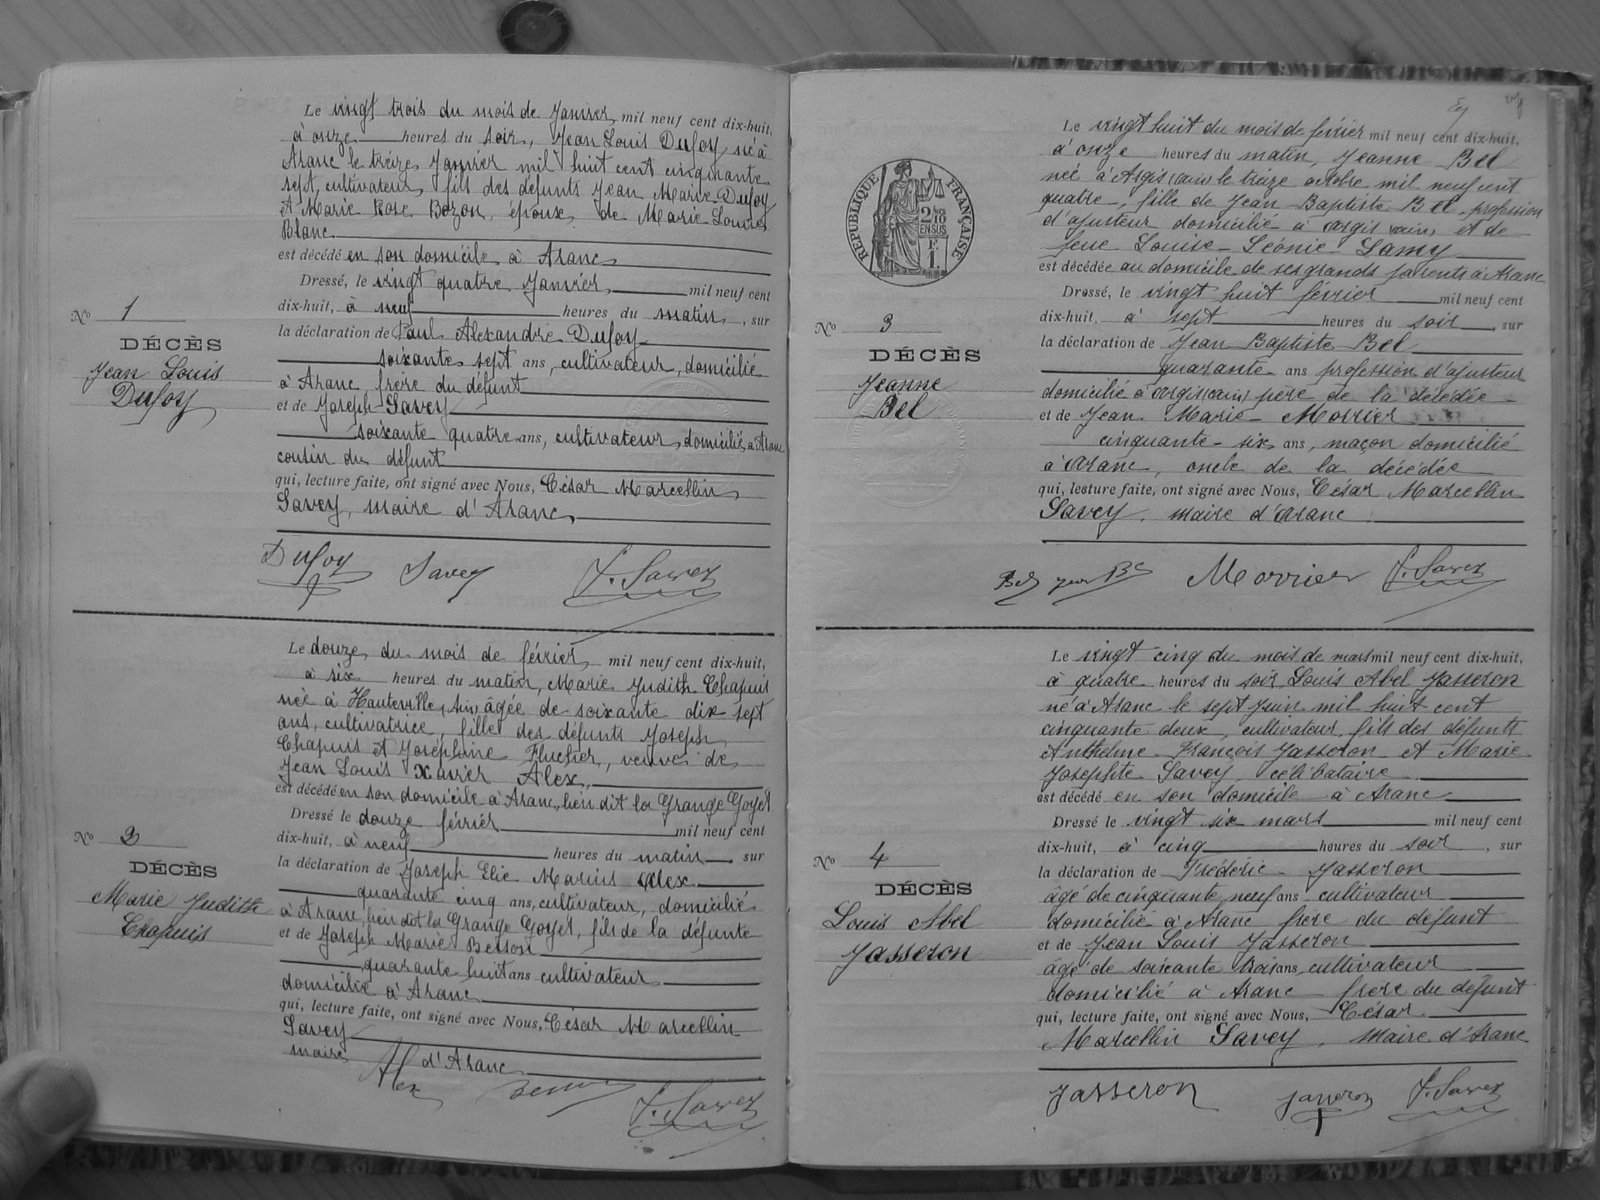 Le vingt trois du mois de Janvier, mil neuf cent dix-huit,
à onze heures du soir, Jean Louis Dufoy né à
Aranc le treize Janvier mil huit cent cinquante
sept, cultivateur, fils des défunts Jean Marie Dufoy
et Marie Rose Bozon, époux de Marie Louise
Blanc
est décédé en son domicile à Aranc
Dressé, le vingt quatre Janvier, mil neuf cent
dix-huit, à neuf heures du matin, sur
la déclaration de Paul Alexandre Dufoy
soixante sept ans, cultivateur, domicilié
à Aranc frère du défunt
et de Joseph Savey
soixante quatre ans, cultivateur, domicilié à Aranc
cousin du défunt
qui, lecture faite, ont signé avec Nous, César Marcellin
Savey, maire d'Aranc,
No 1
DÉCÈS
Jean Louis
Dufoy
Dufoy Savey S. Savey
Le douze du mois de février, mil neuf cent dix-huit,
à six heures du matin, Marie Judith Chapuis
née à Hauteville, (Ain) âgée de soixante dix sept
ans, cultivatrice, fille des défunts Joseph
Chapuis et Joséphine Flucher, veuve de
Jean Louis Xavier Alex,
est décédé en son domicile à Aranc, lieu dit la Grange Goyet
Dressé le douze février mil neuf cent
dix-huit, à neuf heures du matin, sur
la déclaration de Joseph Elie Marius Alex
quarante cinq ans, cultivateur, domicilié
à Aranc, lieu dit la Grange Goyet, fils de la défunte
et de Joseph Marie Besson
quarante huit ans cultivateur
domicilié à Aranc
qui, lecture faite, ont signé avec Nous, César Marcellin
Savey
maire d'Aranc
No 2
DÉCÈS
Marie Judith
Chapuis
Alex S. Savey
RÉPUBLIQUE FRANÇAISE
2/10 EN SUS
Le vingt huit du mois de février mil neuf cent dix-huit,
à onze heures du matin, Jeanne Bel
née à Argis (Ain) le treize octobre mil neuf cent
quatre, fille de Jean Baptiste Bel, profession
d'ajusteur domicilié à Argis (Ain) et de
feue Louise Léonie Lamy
est décédée au domicile de ses grands parents à Aranc
Dressé, le vingt huit février mil neuf cent
dix-huit, à sept heures du soir, sur
la déclaration de Jean Baptiste Bel
quarante ans profession d'ajusteur
domicilié à Argis (Ain) père de la décédée
et de Jean Marie Morrier
cinquante six ans, maçon domicilié
à Aranc, oncle de la décédée
qui, lecture faite, ont signé avec Nous, César Marcellin
Savey, maire d'Aranc
No 3
DÉCÈS
Jeanne
Bel
Morrier S. Savey
Le vingt cinq du mois de mars mil neuf cent dix-huit,
à quatre heures du soir, Louis Abel Jasseron
né à Aranc le sept juin mil huit cent
cinquante deux, cultivateur, fils des défunts
Anthelme François Jasseron et Marie
Josephte Savey, célibataire
est décédé en son domicile à Aranc
Dressé le vingt six mars mil neuf cent
dix-huit, à cinq heures du soir, sur
la déclaration de Frédéric Jasseron
âgé de cinquante neuf ans cultivateur
domicilié à Aranc frère du défunt
et de Jean Louis Jasseron
âgé de soixante trois ans, cultivateur
domicilié à Aranc frère du défunt
qui, lecture faite, ont signé avec Nous, César
Marcellin Savey, Maire d'Aranc
No 4
DÉCÈS
Louis Abel
Jasseron
Jasseron Jasseron S. Savey